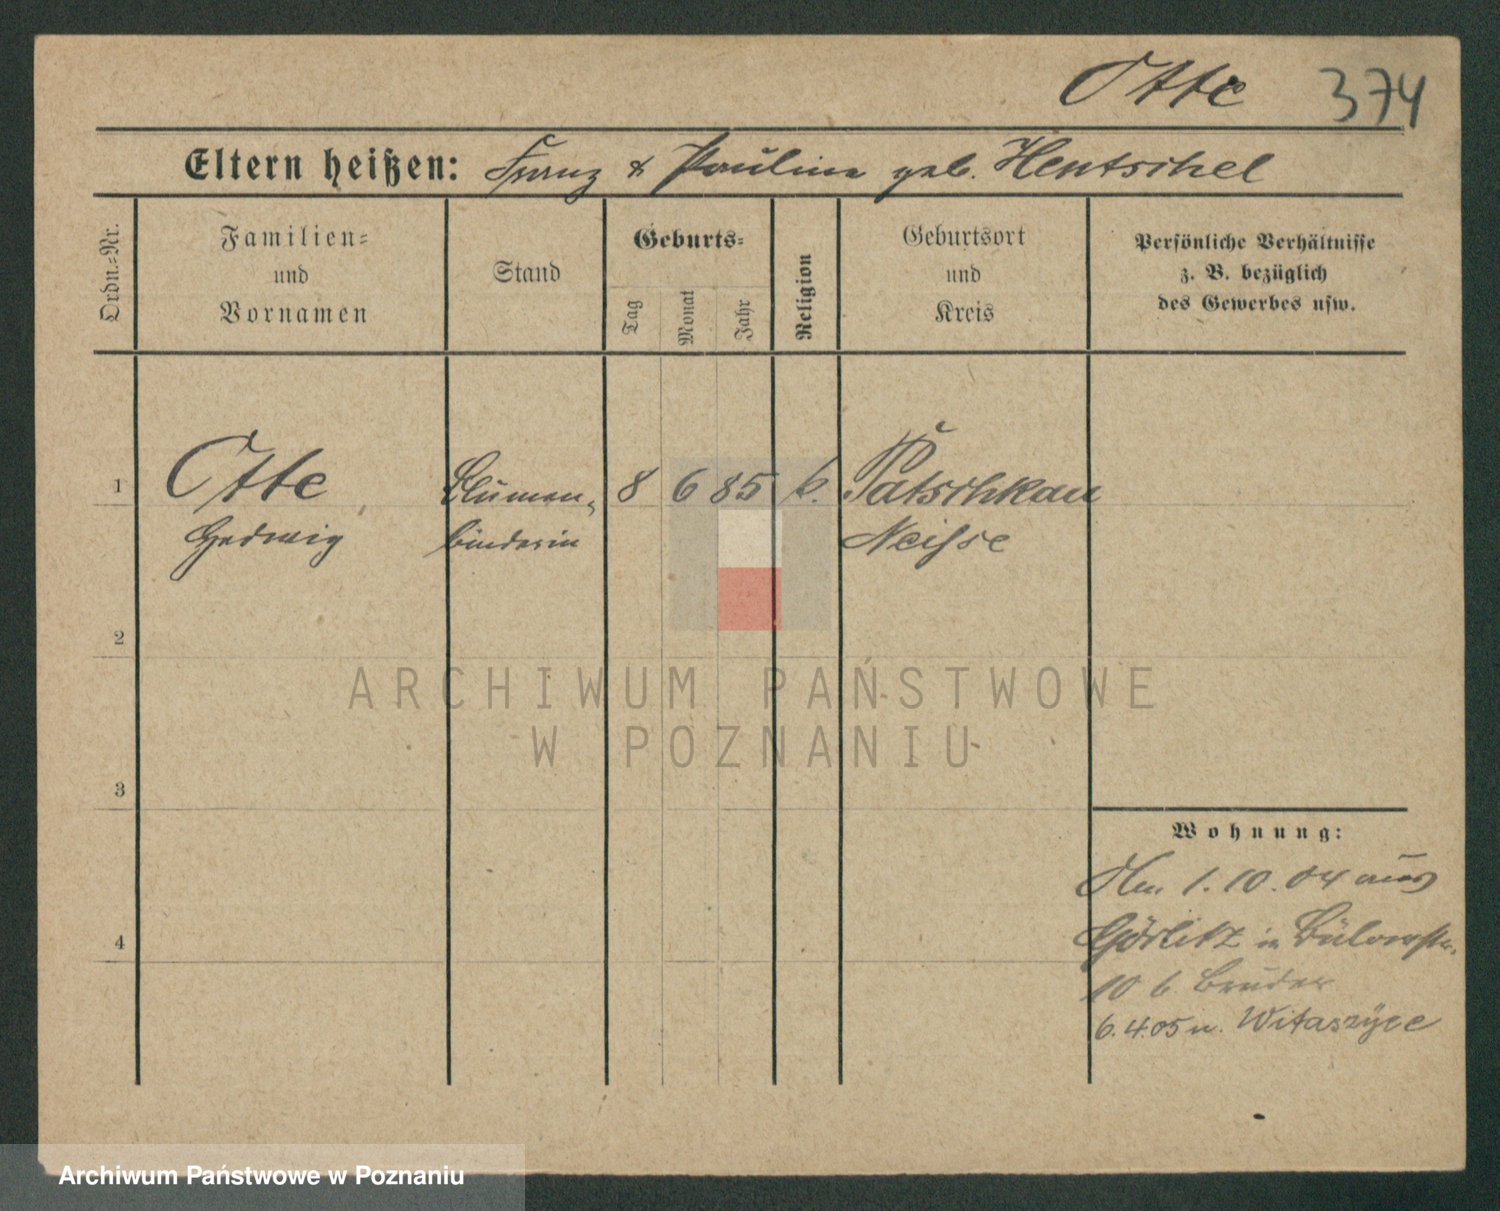 Otte 374
Eltern heißen: Franz & Pauline geb. Hentschel
Ordn.=Nr.
Familien=
und
Vornamen
Stand
Geburts=
Tag
Monat
Jahr
Religion
Geburtsort
und
Kreis
Persönliche Verhältnisse
z. B. bezüglich
des Gewerbes usw.
1 Otte Blumen- 8 6 85 k. Patschkau
Hedwig binderin Neisse
2
ARCHIWUM PAŃSTWOWE
W POZNANIU
3
Wohnung:
1. 10. 04 aus
4 Görlitz in Bülowstr.
10 b. Bruder
6.4.05 n. Witaszyce
Archiwum Państwowe w Poznaniu